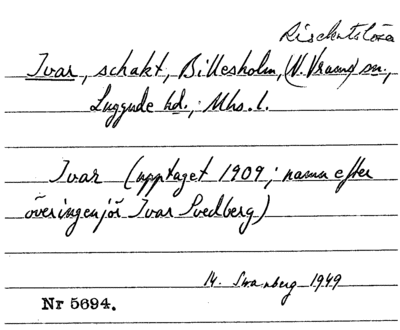 Ivar, schakt, Billesholm, (N. Vrams) sn.,
Luggude hd., Mhs. l.
Ivar (upptaget 1909; namn efter
överingenjör Ivar Svedberg)
14. Swanberg 1949
Nr 5694.